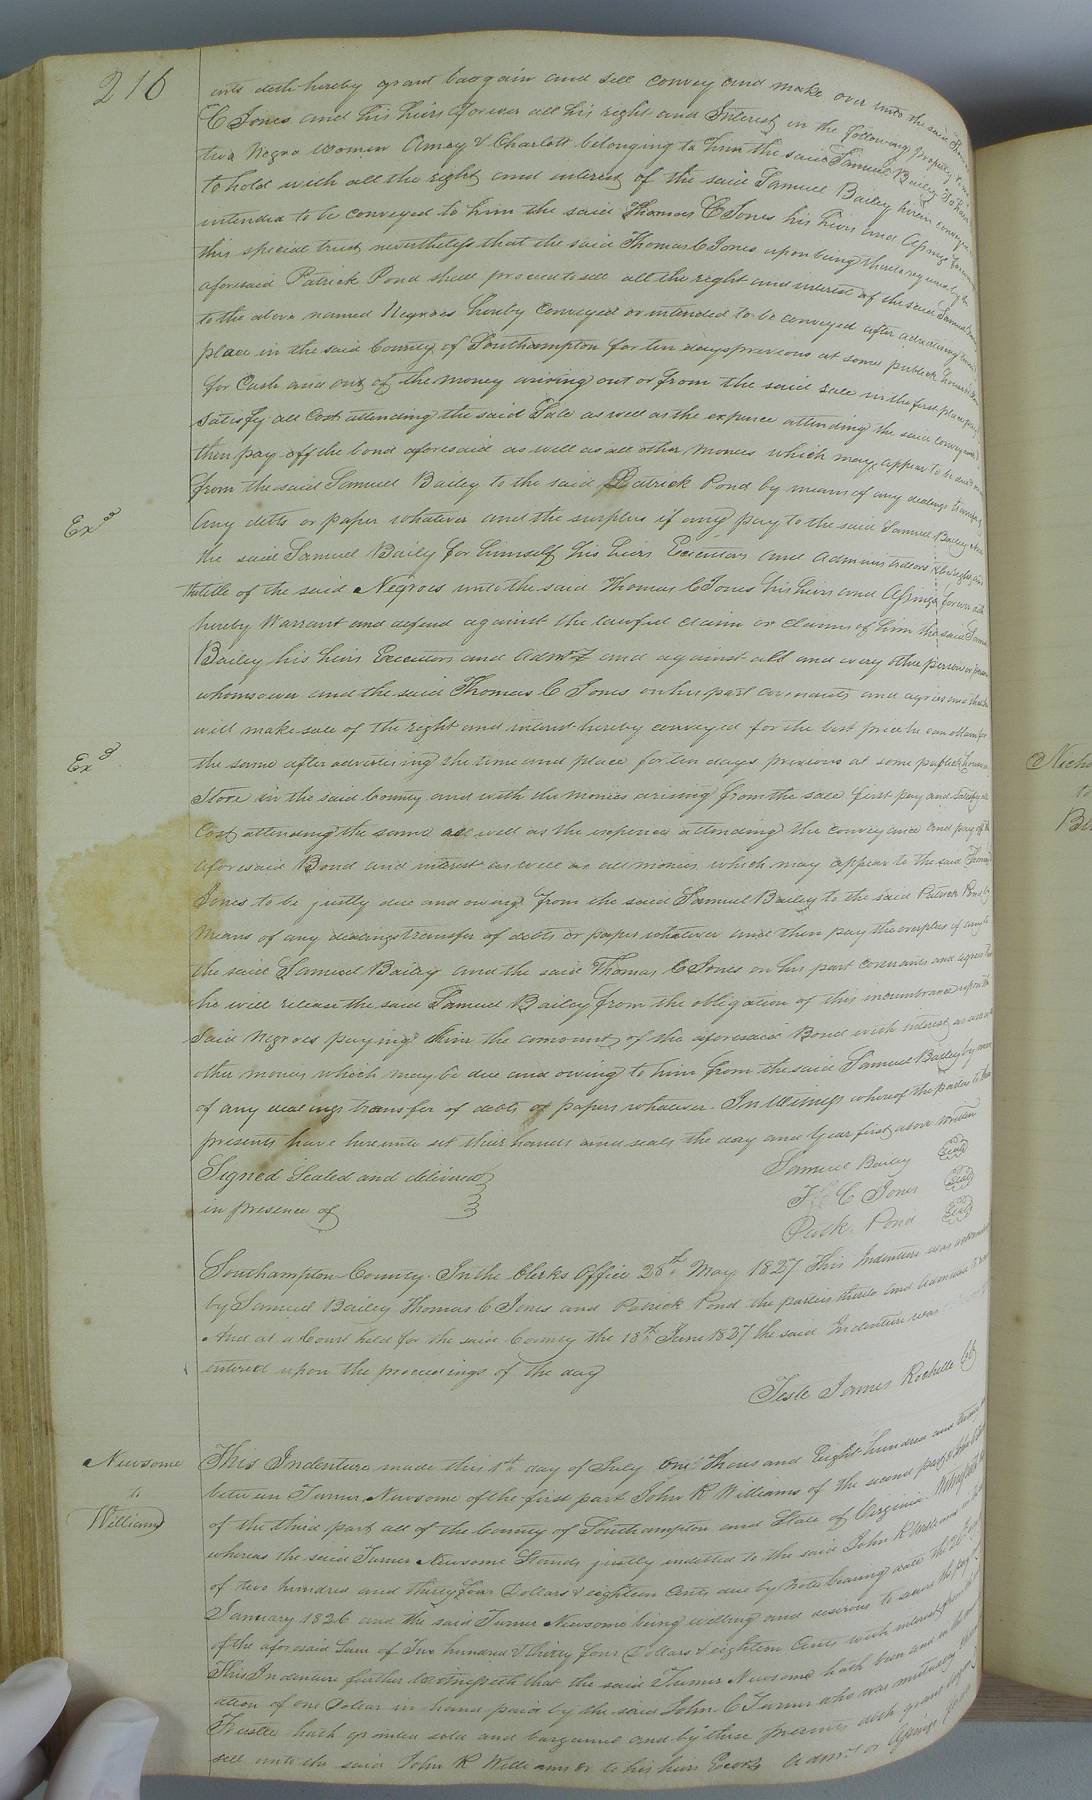 216
unto doth hereby grant bargain and sell convey and make over unto the said Thomas
C Jones and his heirs forever all his right and Interest in the following property to wit
two Negro women Amay & Charlott belonging to him the said Samuel Bailey To have
to hold with all the right and interest of the said Samuel Bailey herein conveyed or
intended to be conveyed to him the said Thomas C Jones his heirs and Assings forever
this special trust nevertheless that the said Thomas C Jones upon being thereto required by the
aforesaid Patrick Pond shall proceed to sell all the right and interest of the said Samuel
to the above named Negroes hereby conveyed or intended to be conveyed after advertising
place in the said County of Southampton for ten days previous at some publick
for Cash and out of the money arising out or from the said sale in the first place
satisfy all Cost attending the said Sale as well as the expence attending the said conveyance
then pay off the bond aforesaid as well as all other Monies which may appear to be due
from the said Samuel Bailey to the said Patrick Pond by means of any dealings
Exd
any debts or paper whatever and the surplus if any pay to the said Samuel Bailey
the said Samuel Baily for himself his heirs Executors and Administrators the right and
the title of the said Negroes unto the said Thomas C Jones his heirs and Assings forever
hereby Warrant and defend against the lawful claim or claims of him the said
Bailey his heirs Executors and Admrs & and against all and every other person
whomsoever and the said Thomas C Jones on his part covenants and agrees
will make sale of the right and interest hereby conveyed for the best price he can obtain for
Exd
the same after advertising the time and place for ten days previous at some publick
Store in the said County and with the monies arising from the sale first pay and satisfy
Cost attending the same as well as the expence attending the conveyance and pay off the
aforesaid Bond and interest as well as all monies which may appear to the said Thomas
Jones to be justly due and owing from the said Samuel Bailey to the said Patrick Pond by
means of any dealings transfer of debts or paper whatever and then pay the overplus if any to
the said Samuel Bailey and the said Thomas C Jones on his part covenants and agrees
he will release the said Samuel Bailey from the obligation of this incumbrance upon the
said Negroes paying him the amount of the aforesaid Bond with interest as well as
other monies which may be due and owing to him from the said Samuel Bailey by
of any dealings transfer of debts or papers whatever. In Witness whereof the parties to these
presents have hereunto set their hands and seals the day and Year first above written
Signed Sealed and delivered
Samuel Bailey Seal
in presence of
T C Jones Seal
Patk. Pond Seal
Southampton County. In the Clerks Office 28th May 1827 This Indenture was
by Samuel Bailey Thomas C Jones and Patrick Pond the parties thereto and
And at a Court held for the said County the 18th June 1827 the said Indenture was
entered upon the proceedings of the day
Teste James Rochelle
Newsome
to
Williams
This Indenture made this 1th day of July One Thousand Eight hundred and
between Turner Newsome of the first part John R Williams of the second part
of the third part all of the County of Southampton and State of Virginia Witnesseth
whereas the said Turner Newsome Stands justly indebted to the said John R
of two hundred and thirty four Dollars & eighteen Cents due by note bearing date the
January 1826 and the said Turner Newsome being willing and desirous to secure the
of the aforesaid Sum of Two hundred & thirty four Dollars & eighteen Cents with interest
This Indenture further Witnesseth that the said Turner Newsome hath
ation of one Dollar in hand paid by the said John C Turner who was mutually
Trustee hath granted sold and bargained and by these presents doth grant
sell unto the said John R Williams or to his heirs Execrs Admrs or Assings
Necho
to